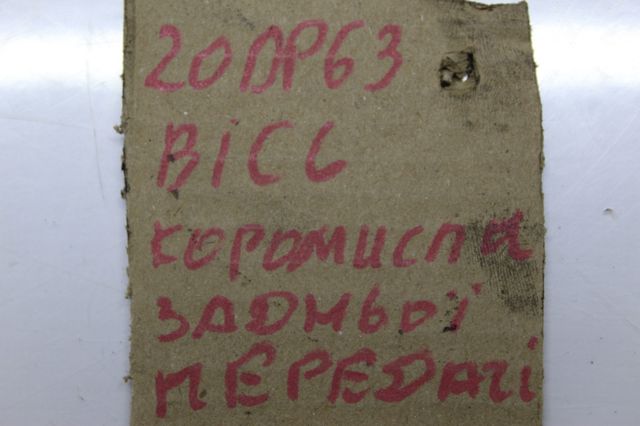 20DP63
ВІСЬ
КОРОМИСЛА
ЗАДНЬОЇ
ПЕРЕДАЧІ